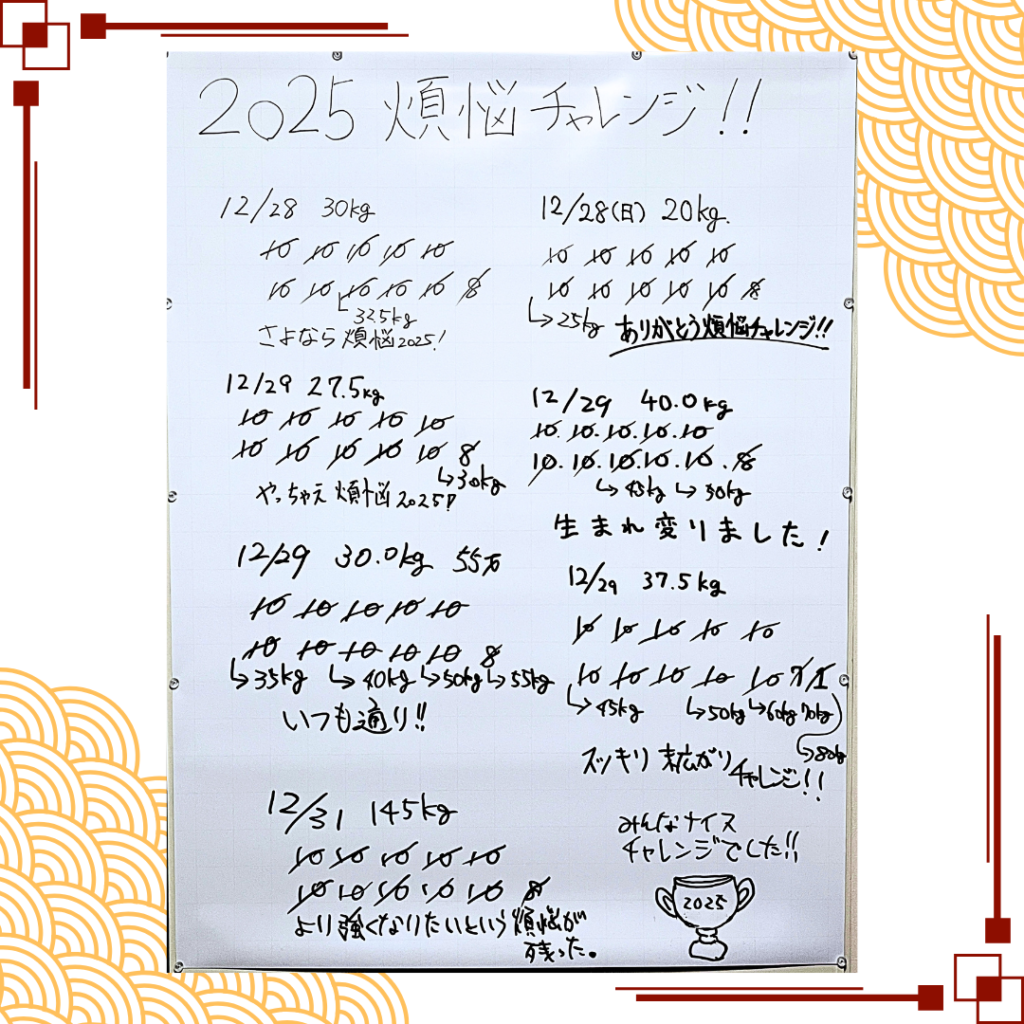 2025 煩悩チャレンジ!!
12/28 30kg
10 10 10 10 10
10 10 10 10 10 8
↳32.5kg
さよなら 煩悩2025!
12/28(日) 20kg.
10 10 10 10 10
10 10 10 10 10 8
↳25kg
ありがとう煩悩チャレンジ!!
12/29 27.5kg
10 10 10 10 10
10 10 10 10 10 8
↳30kg
やっちゃえ 煩悩2025!
12/29 40.0kg
10. 10. 10. 10. 10
10. 10. 10. 10. 10. 8
↳45kg ↳50kg
生まれ変りました!
12/29 30.0kg 55万
10 10 10 10 10
10 10 10 10 10 8
↳35kg ↳40kg ↳50kg ↳55kg
いつも通り!!
12/29 37.5kg
10 10 10 10 10
10 10 10 10 10 7 1
↳45kg ↳50kg ↳60kg 70kg
↳80kg
スッキリ 末広がり
チャレンジ!!
12/31 145kg
10 10 10 10 10
10 10 10 10 10 8
より強くなりたいという煩悩が
残った。
みんなナイス
チャレンジでした!!
2025